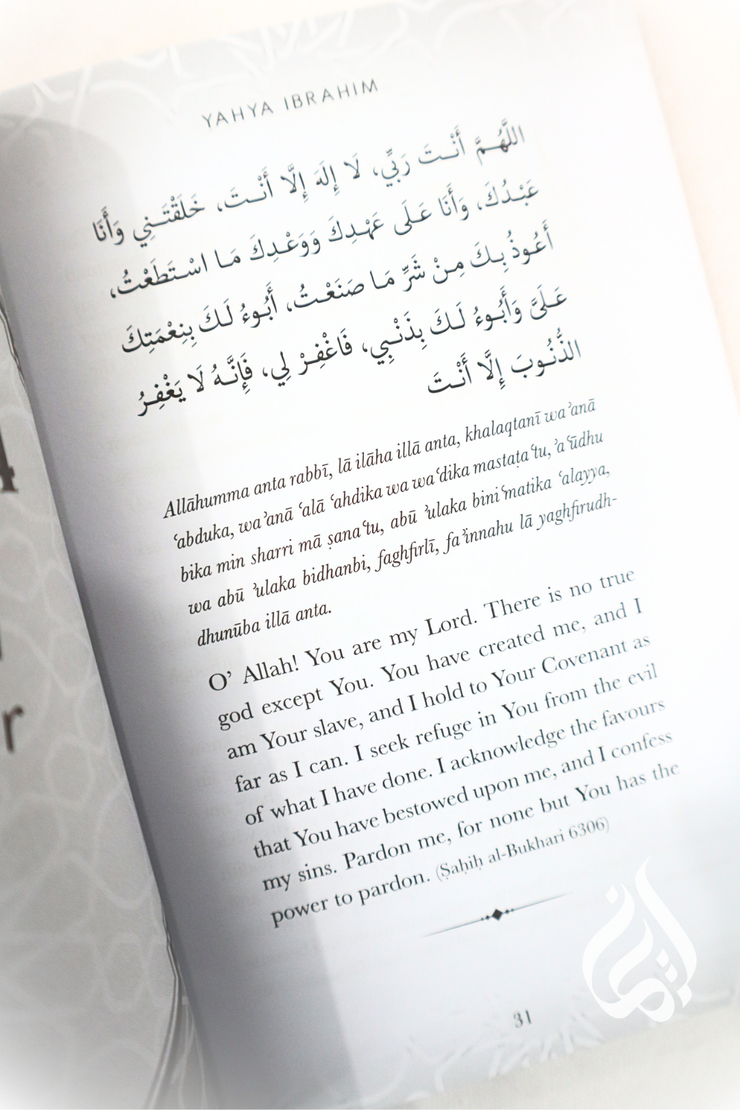 YAHYA IBRAHIM
اللَّهُمَّ أَنْتَ رَبِّي، لَا إِلَهَ إِلَّا أَنْتَ، خَلَقْتَنِي وَأَنَا
عَبْدُكَ، وَأَنَا عَلَى عَهْدِكَ وَوَعْدِكَ مَا اسْتَطَعْتُ،
أَعُوذُ بِكَ مِنْ شَرِّ مَا صَنَعْتُ، أَبُوءُ لَكَ بِنِعْمَتِكَ
عَلَيَّ وَأَبُوءُ لَكَ بِذَنْبِي، فَاغْفِرْ لِي، فَإِنَّهُ لَا يَغْفِرُ
الذُّنُوبَ إِلَّا أَنْتَ
Allāhumma anta rabbī, lā ilāha illā anta, khalaqtanī wa ʾanā
ʿabduka, wa ʾanā ʿalā ʿahdika wa waʿdika mastaṭaʿtu, ʾaʿūdhu
bika min sharri mā ṣanaʿtu, abū ʾulaka biniʿmatika ʿalayya,
wa abū ʾulaka bidhanbi, faghfirlī, faʾinnahu lā yaghfirudh-
dhunūba illā anta.
O’ Allah! You are my Lord. There is no true
god except You. You have created me, and I
am Your slave, and I hold to Your Covenant as
far as I can. I seek refuge in You from the evil
of what I have done. I acknowledge the favours
that You have bestowed upon me, and I confess
my sins. Pardon me, for none but You has the
power to pardon. (Ṣaḥiḥ al-Bukhari 6306)
31
4
r